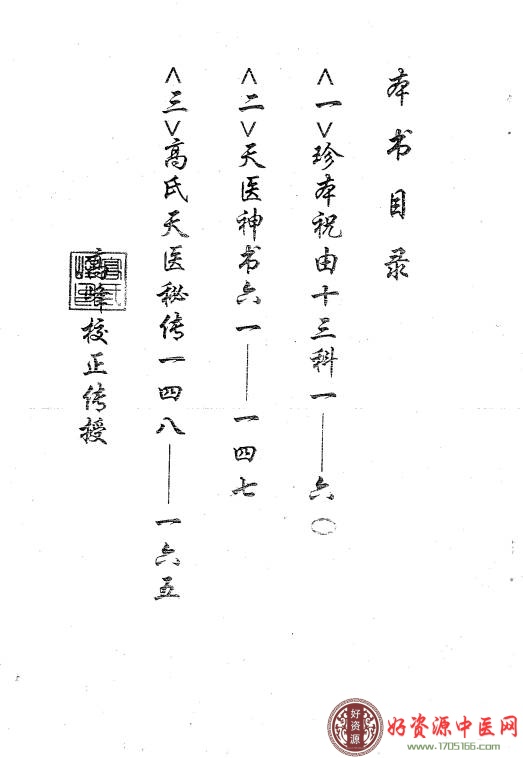 本书目录
<一>珍本祝由十三科一——六〇
<二>天医神书六一——一四七
<三>高氏天医秘传一四八——一六五
高峰校正传授
好资源
好资源中医网
www.1705166.com